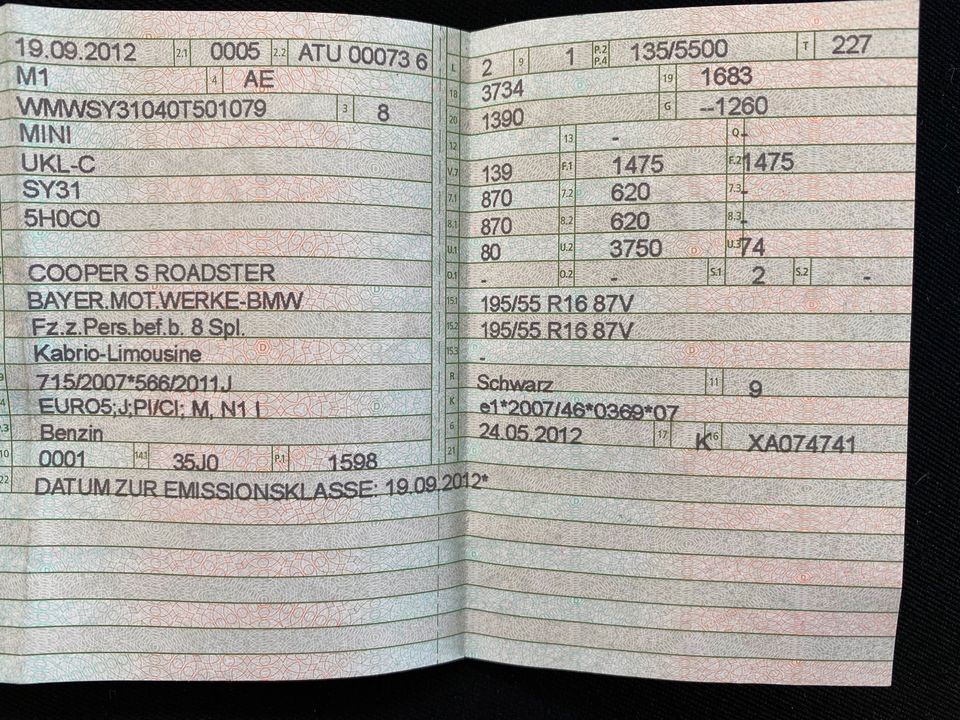 19.09.2012 2.1 0005 2.2 ATU 00073 6
M1 4 AE
WMWSY31040T501079 3 8
MINI
UKL-C
SY31
5H0C0
COOPER S ROADSTER
BAYER.MOT.WERKE-BMW
Fz.z.Pers.bef.b. 8 Spl.
Kabrio-Limousine
715/2007*566/2011J
EURO5;J;PI/CI; M, N1 I
Benzin
10 0001 14.1 35J0 P.1 1598
22 DATUM ZUR EMISSIONSKLASSE: 19.09.2012*
L 2 9 1 P.2 P.4 135/5500 T 227
18 3734 19 1683
20 1390 G --1260
12 13 - Q -
V.7 139 F.1 1475 F.2 1475
7.1 870 7.2 620 7.3 -
8.1 870 8.2 620 8.3 -
U.1 80 U.2 3750 U.3 74
O.1 - O.2 - S.1 2 S.2 -
15.1 195/55 R16 87V
15.2 195/55 R16 87V
15.3 -
R Schwarz 11 9
K e1*2007/46*0369*07
6 24.05.2012 17 K 16 XA074741
21